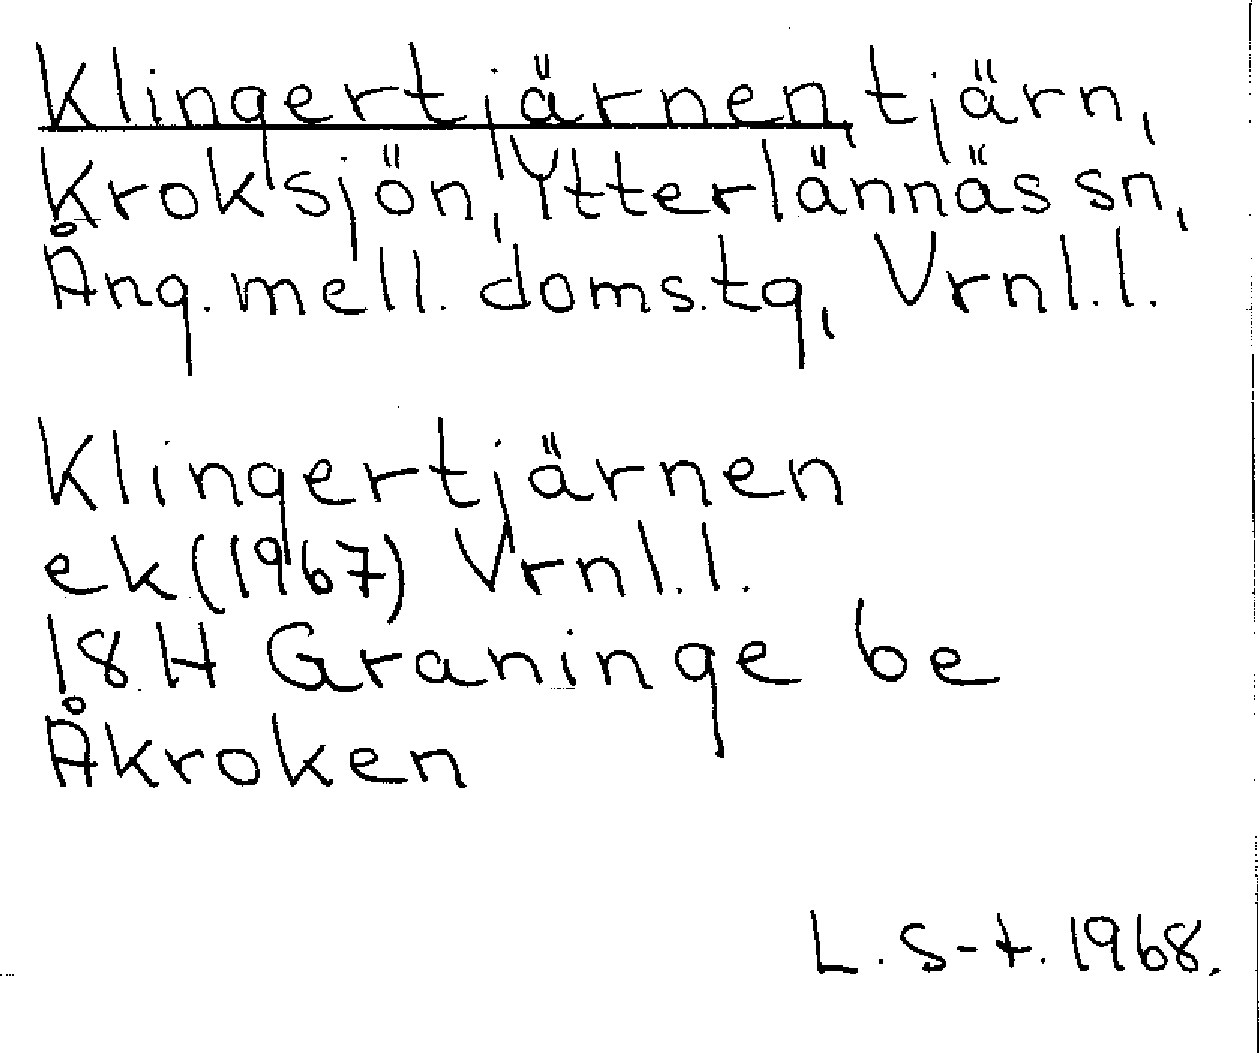 Klingertjärnen, tjärn,
Kroksjön, Ytterlännäs sn,
Ång. mell. doms.tg, Vrnl.l.
Klingertjärnen
ek (1967) Vrnl.l.
18.H Graninge be
Åkroken
L. S-t. 1968.